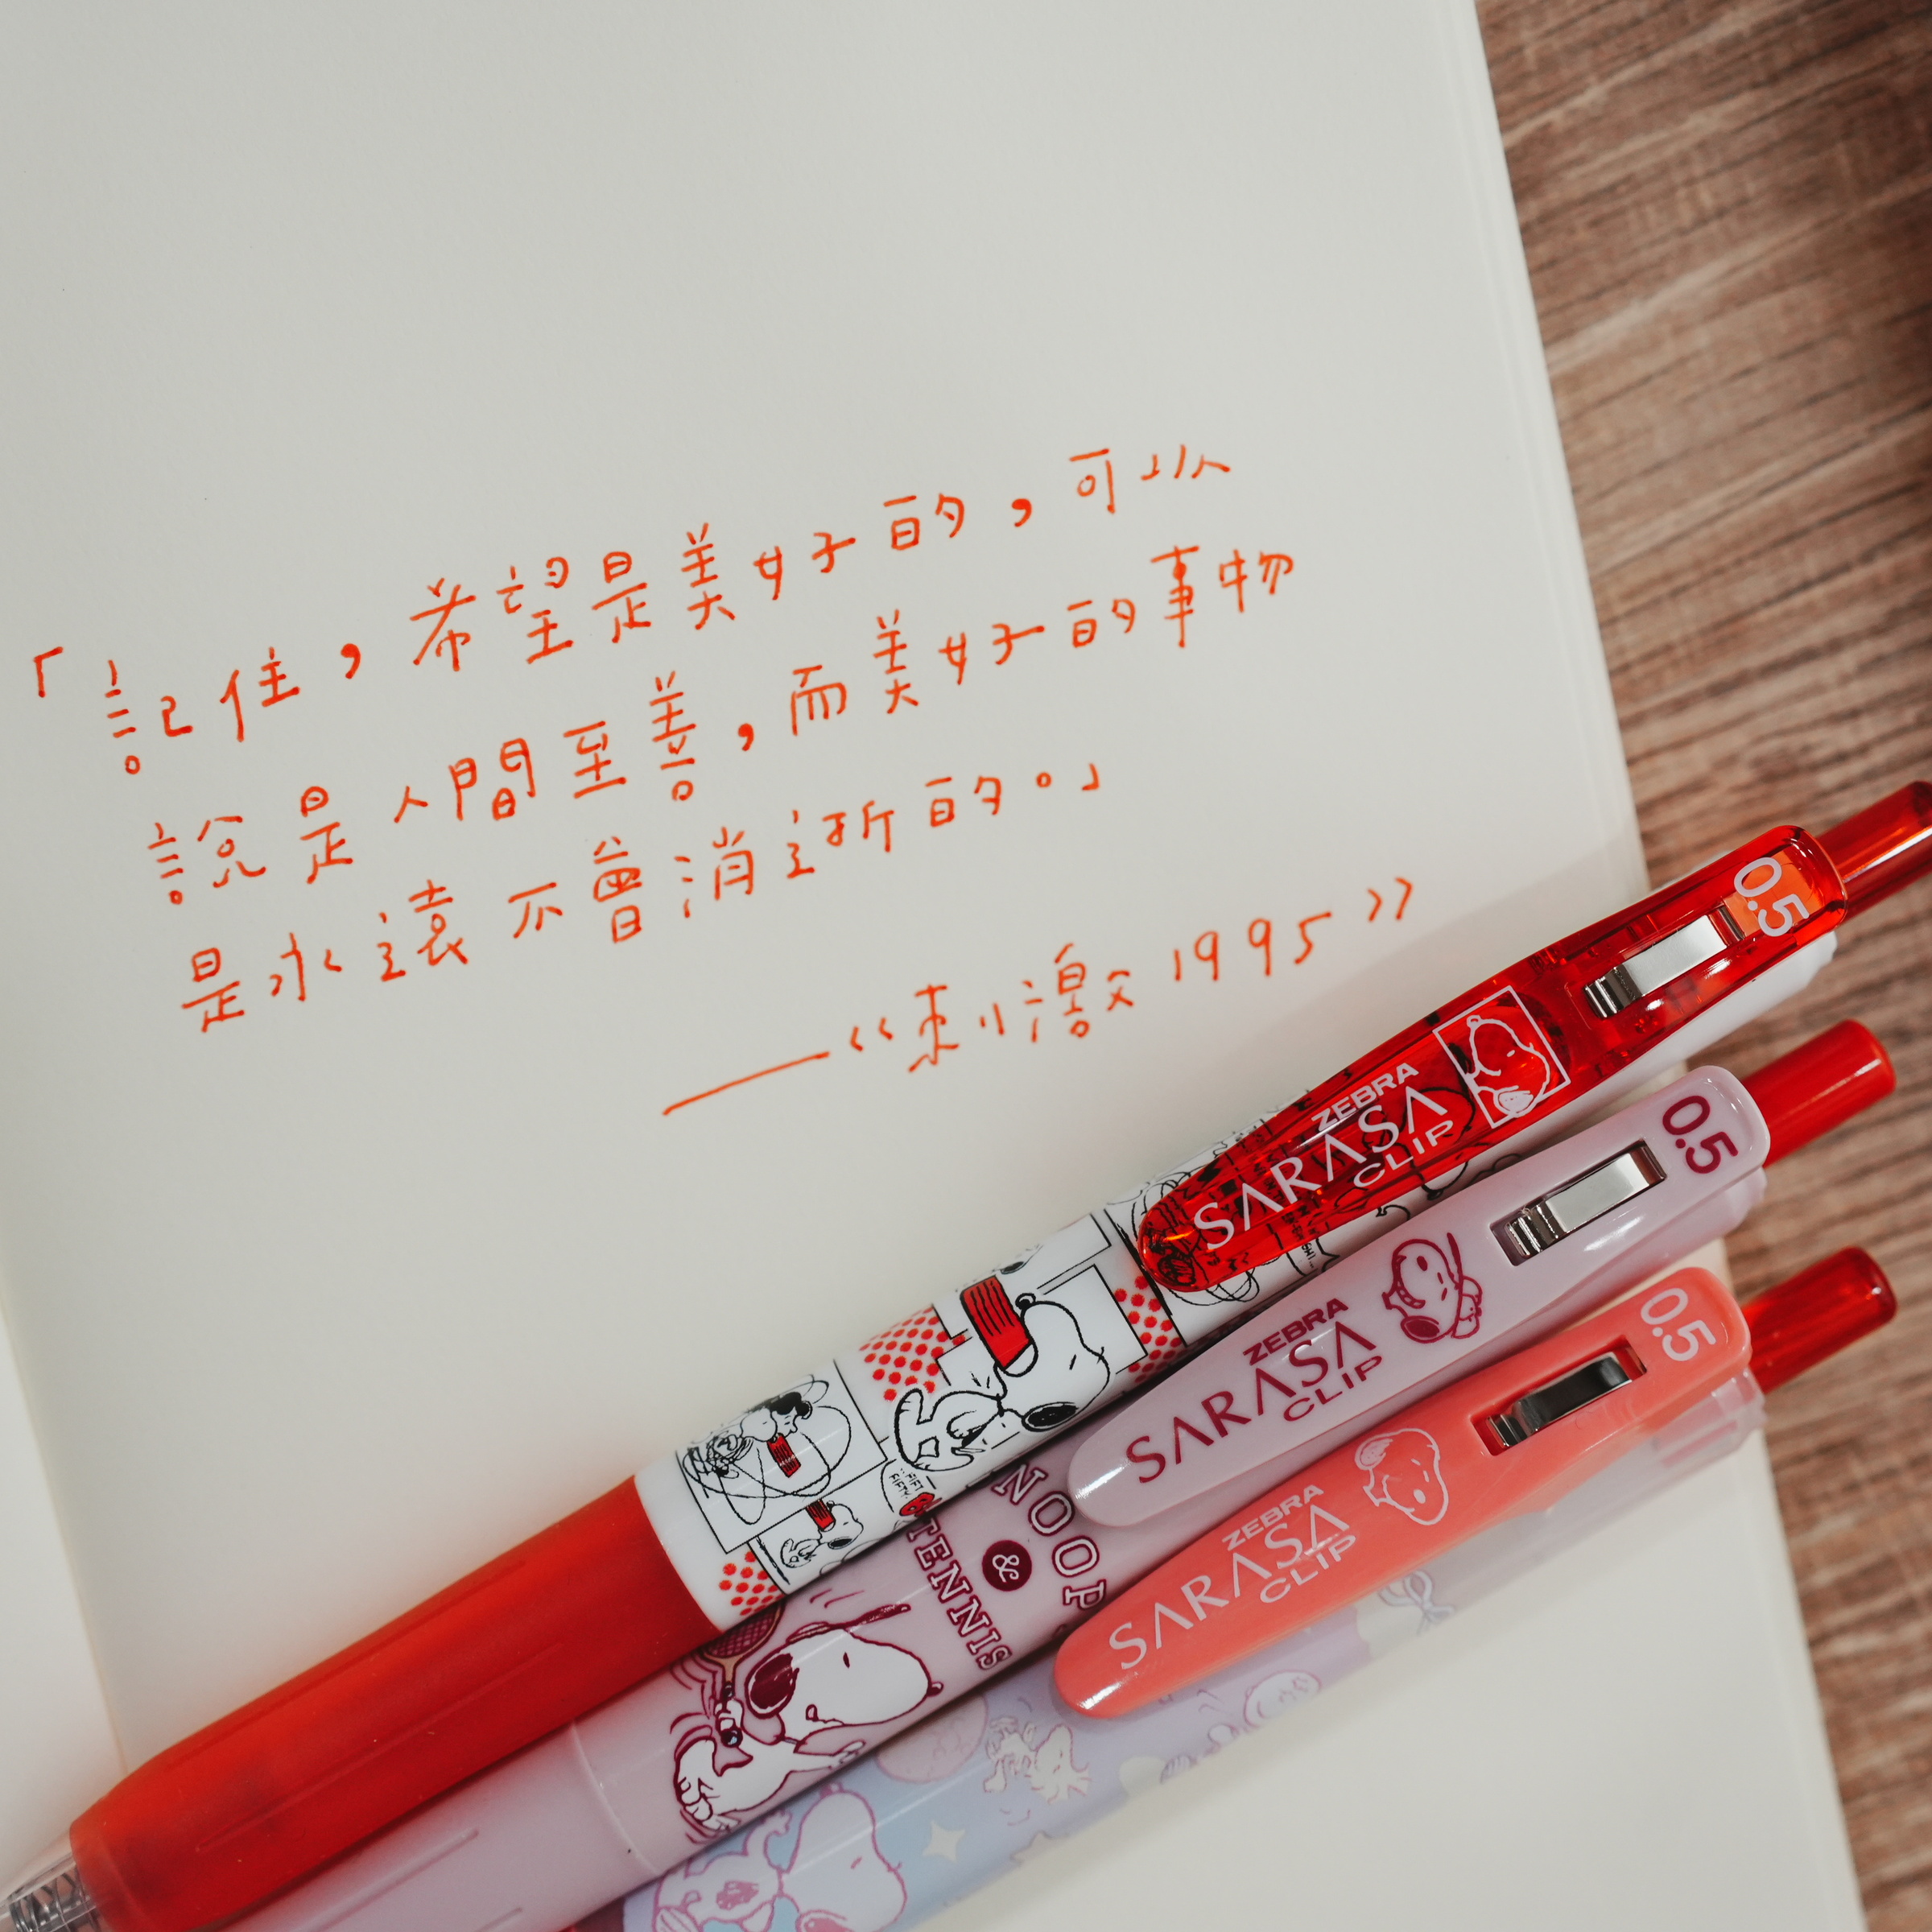 「記住，希望是美好的，可以
說是人間至善，而美好的事物
是永遠不會消逝的。」
——《刺激1995》
0.5
ZEBRA
SARASA
CLIP
0.5
ZEBRA
SARASA
CLIP
0.5
ZEBRA
SARASA
CLIP
NOOP
&
TENNIS